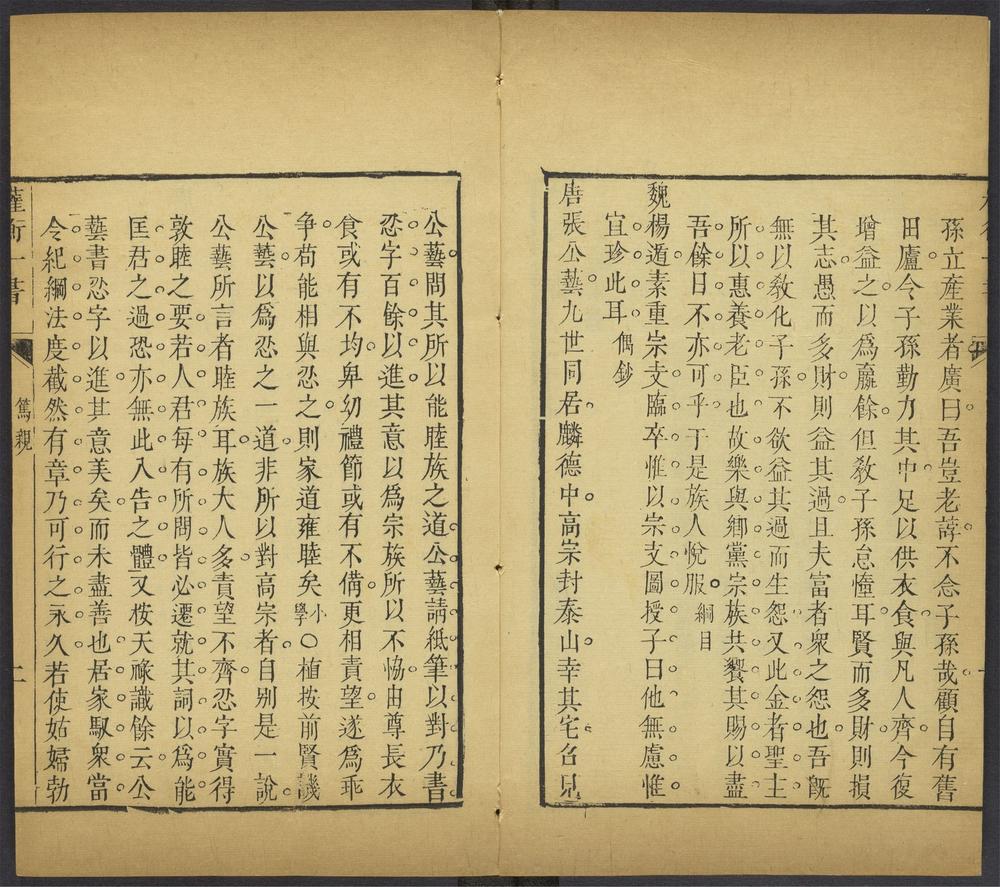 孫立產業者廣曰吾豈老誖不念子孫哉顧自有舊
田廬今子孫勤力其中足以供衣食與凡人齊今復
增益之以爲羸餘但敎子孫怠憧耳賢而多財則損
其志愚而多財則益其過且夫富者衆之怨也吾旣
無以敎化子孫不欲益其過而生怨又此金者聖主
所以惠養老臣也故樂與鄉黨宗族共饗其賜以盡
吾餘日不亦可乎于是族人悅服 綱目
魏楊遁素重宗支臨卒惟以宗支圖授子曰他無慮惟
宜珍此耳 偶鈔
唐張公藝九世同居麟德中高宗封泰山幸其宅召見
公藝問其所以能睦族之道公藝請紙筆以對乃書
忍字百餘以進其意以爲宗族所以不恊由尊長衣
食或有不均卑幼禮節或有不備更相責望遂爲乖
争苟能相與忍之則家道雍睦矣 小學 ○植按前賢譏
公藝以爲忍之一道非所以對高宗者自别是一說
公藝所言者睦族耳族大人多責望不齊忍字實得
敦睦之要若人君每有所問皆必遷就其詞以爲能
匡君之過恐亦無此入告之體又桉天祿識餘云公
藝書忍字以進其意美矣而未盡善也居家馭衆當
令紀綱法度截然有章乃可行之永久若使姑婦勃
篤親